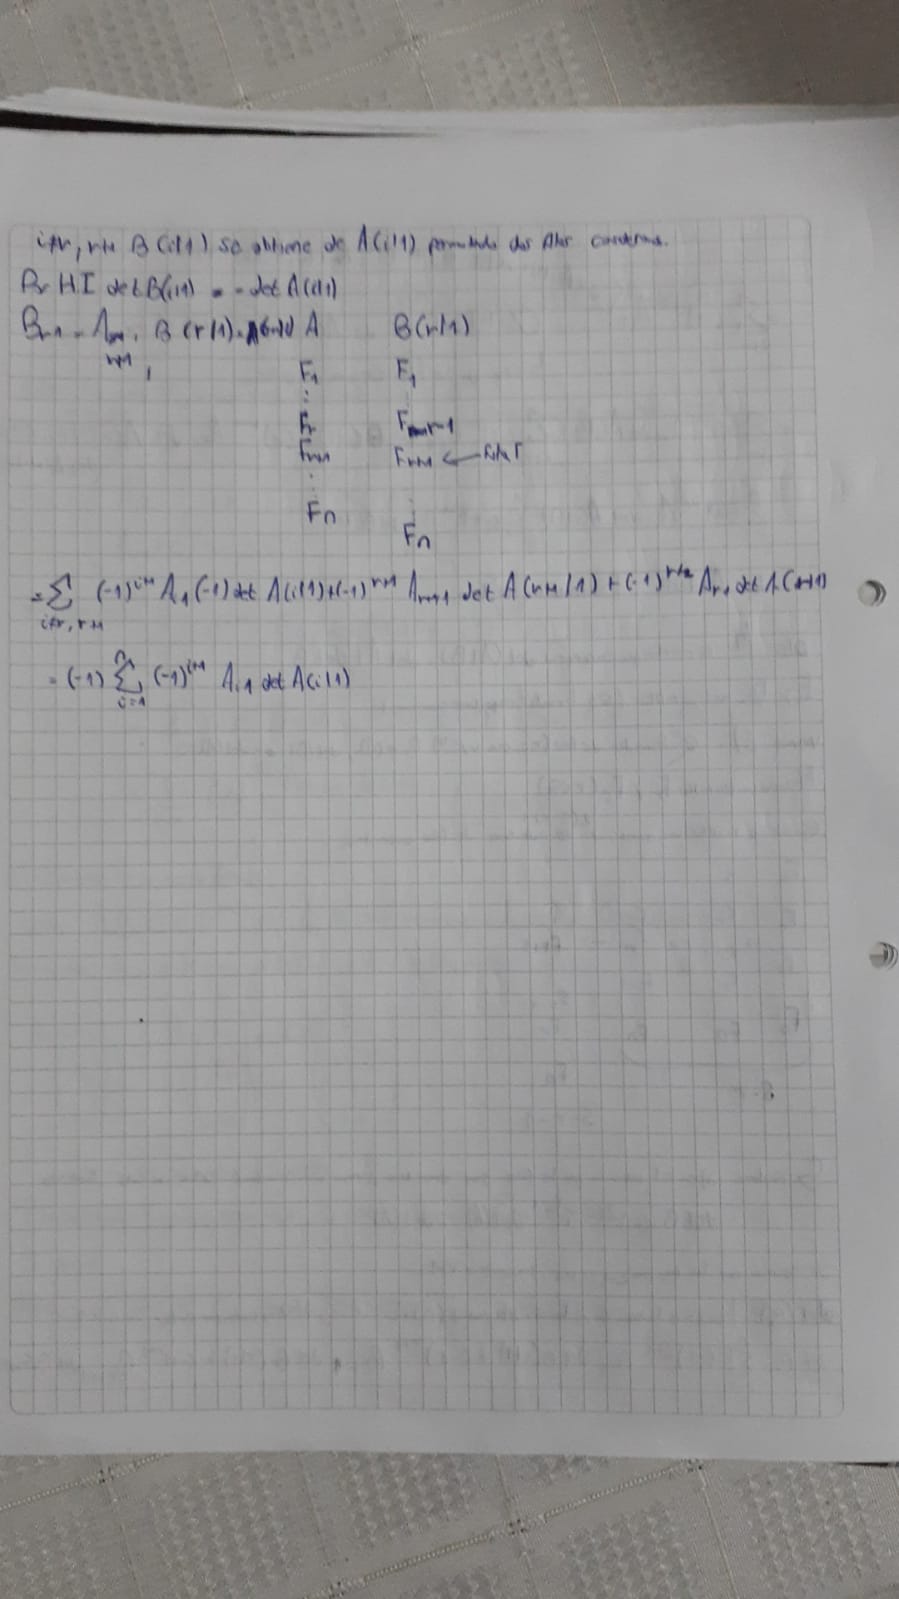 i≠r, r+1 B(i|1) se obtiene de A(i|1) permutando dos filas consecutivas.
Por HI det B(i|1) = - det A(i|1)
Br1 = Ar+1,1 B(r|1) A B(r|1)
F1 F1
⋮ ⋮
Fr Fr-1
Fr+1 Fr+1 ← fila r
⋮ ⋮
Fn
Fn
= Σ (-1)^i+1 Ai1 (-1) det A(i|1) + (-1)^r+1 Ar+1,1 det A(r+1|1) + (-1)^r+2 Ar1 det A(r|1)
i≠r, r+1
= (-1) Σ (-1)^i+1 Ai1 det A(i|1)
n
i=1